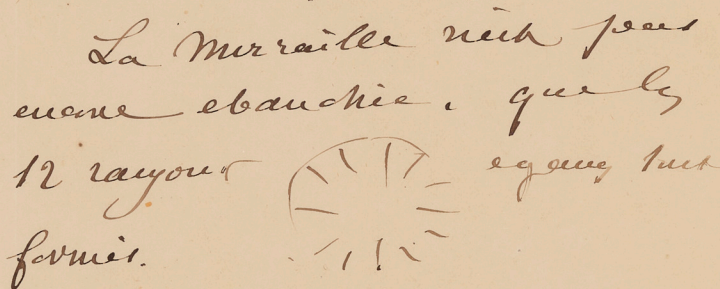 La murraille n'est pas
encore ebauchée, que les
12 rayons egaux sont
formés.